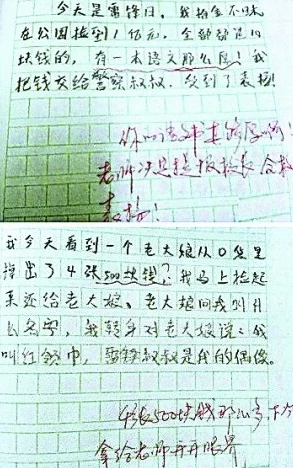 今天是雷锋日，我拾金不昧
在公园捡到1亿元，全部都是10
块钱的，有一本语文那么厚！我
把钱交给警察叔叔，受到了表扬！
你的语文书真够厚啊！
老师
表扬！
我今天看到一个老大娘从口袋里
掉出了4张500块钱，我马上捡起
来还给老大娘。老大娘问我叫什
么名字，我转身对老大娘说：我
叫红领巾，雷锋叔叔是我的偶像。
4张500块钱那么多，下次
拿给老师开开眼界